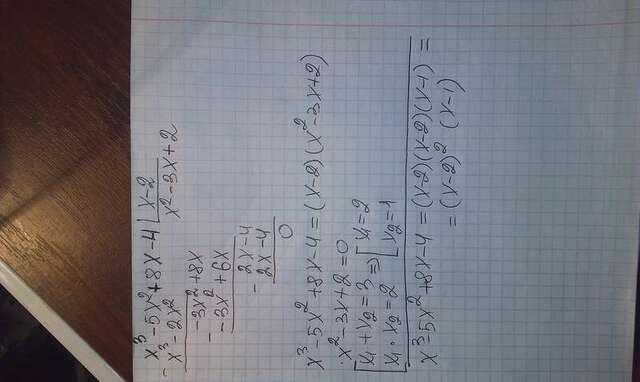 x³-5x²+8x-4 | x-2
- x³-2x² x²-3x+2
-3x²+8x
- -3x²+6x
2x-4
- 2x-4
0
x³-5x²+8x-4=(x-2)(x²-3x+2)
x²-3x+2=0
[x₁+x₂=3 => [x₁=2
[x₁·x₂=2 [x₂=1
x³-5x²+8x-4=(x-2)(x-2)(x-1)=
=(x-2)²(x-1)